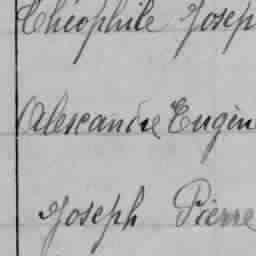 Théophile Josep
Alexandre Eugèn
Joseph Pierre